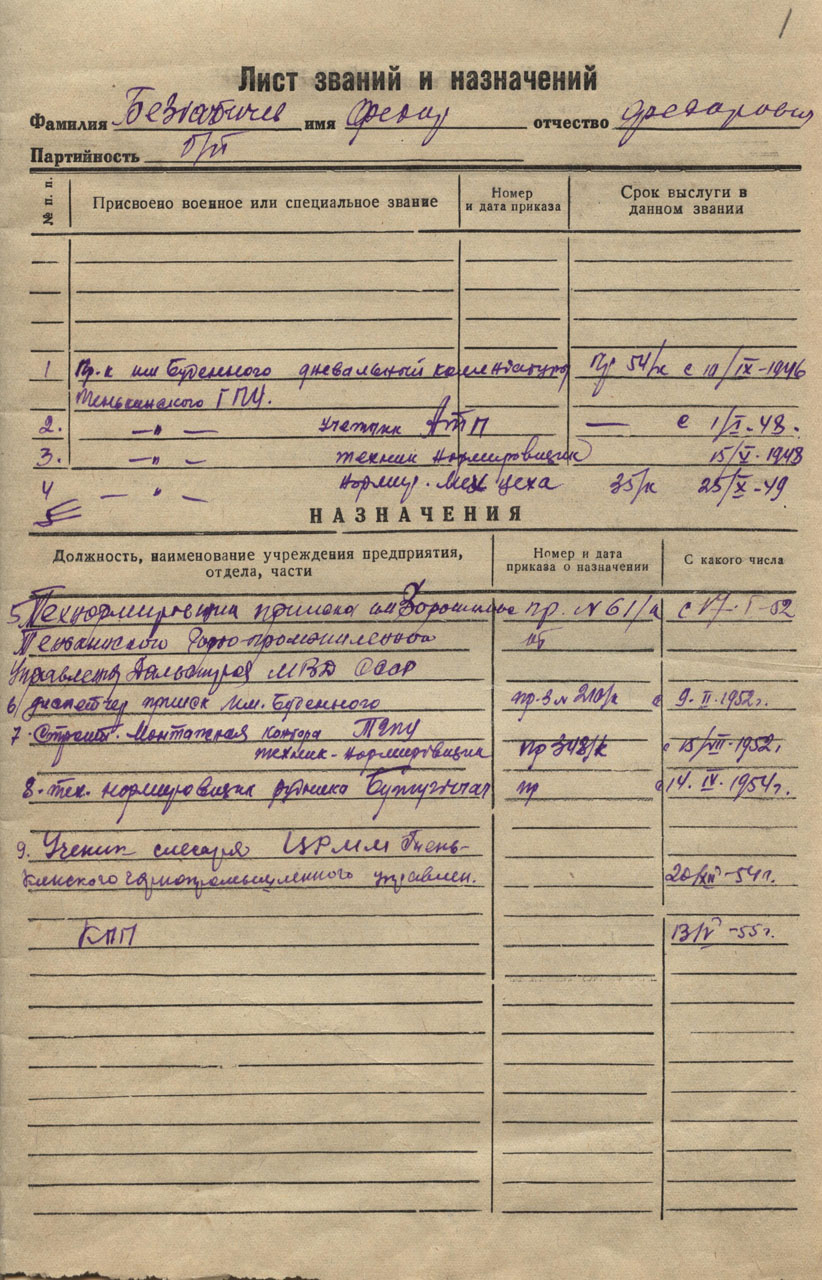 1
Лист званий и назначений
Фамилия Безгабичев имя Федор отчество Федорович
Партийность б/п
№ п. п. Присвоено военное или специальное звание Номер и дата приказа Срок выслуги в данном звании
1 Пр-к им Буденного дневальный Пр 54/к с 10/IX-1946
Тенькинского ГПУ.
2. —"— учетчик АТП — с 1/I-48.
3. —"— техник нормировщик 15/V-1948
4 —"— Нормир. Мех цеха 35/к 25/X-49
5
НАЗНАЧЕНИЯ
Должность, наименование учреждения предприятия, отдела, части Номер и дата приказа о назначении С какого числа
5. Технормировщик прииска им Ворошилова пр. № 61/к с 17-I-52
Тенькинского Горно-промышленного
Управления Дальстроя МВД СССР
6/ диспетчер прииск им. Буденного пр-з № 210/к с 9-II-1952г.
7. Строит. Монтажная контора ТГПУ
техник-нормировщик пр 348/к с 15/VII-1952г
8. тех. нормировщик рудника Бутугычаг пр с 14. IV. 1954г.
9. Ученик слесаря ЦРММ Тень-
кинского горнопромышленного управлен. 20/XII-54г.
КПП 13/V-55г.